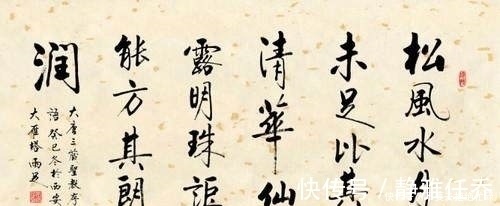 松風水
未足比其
清華仙
露明珠詎
能方其朗
潤
大唐三藏聖教序
語癸巳冬於西安
大雁塔雨
快传号 / 静雅任乔